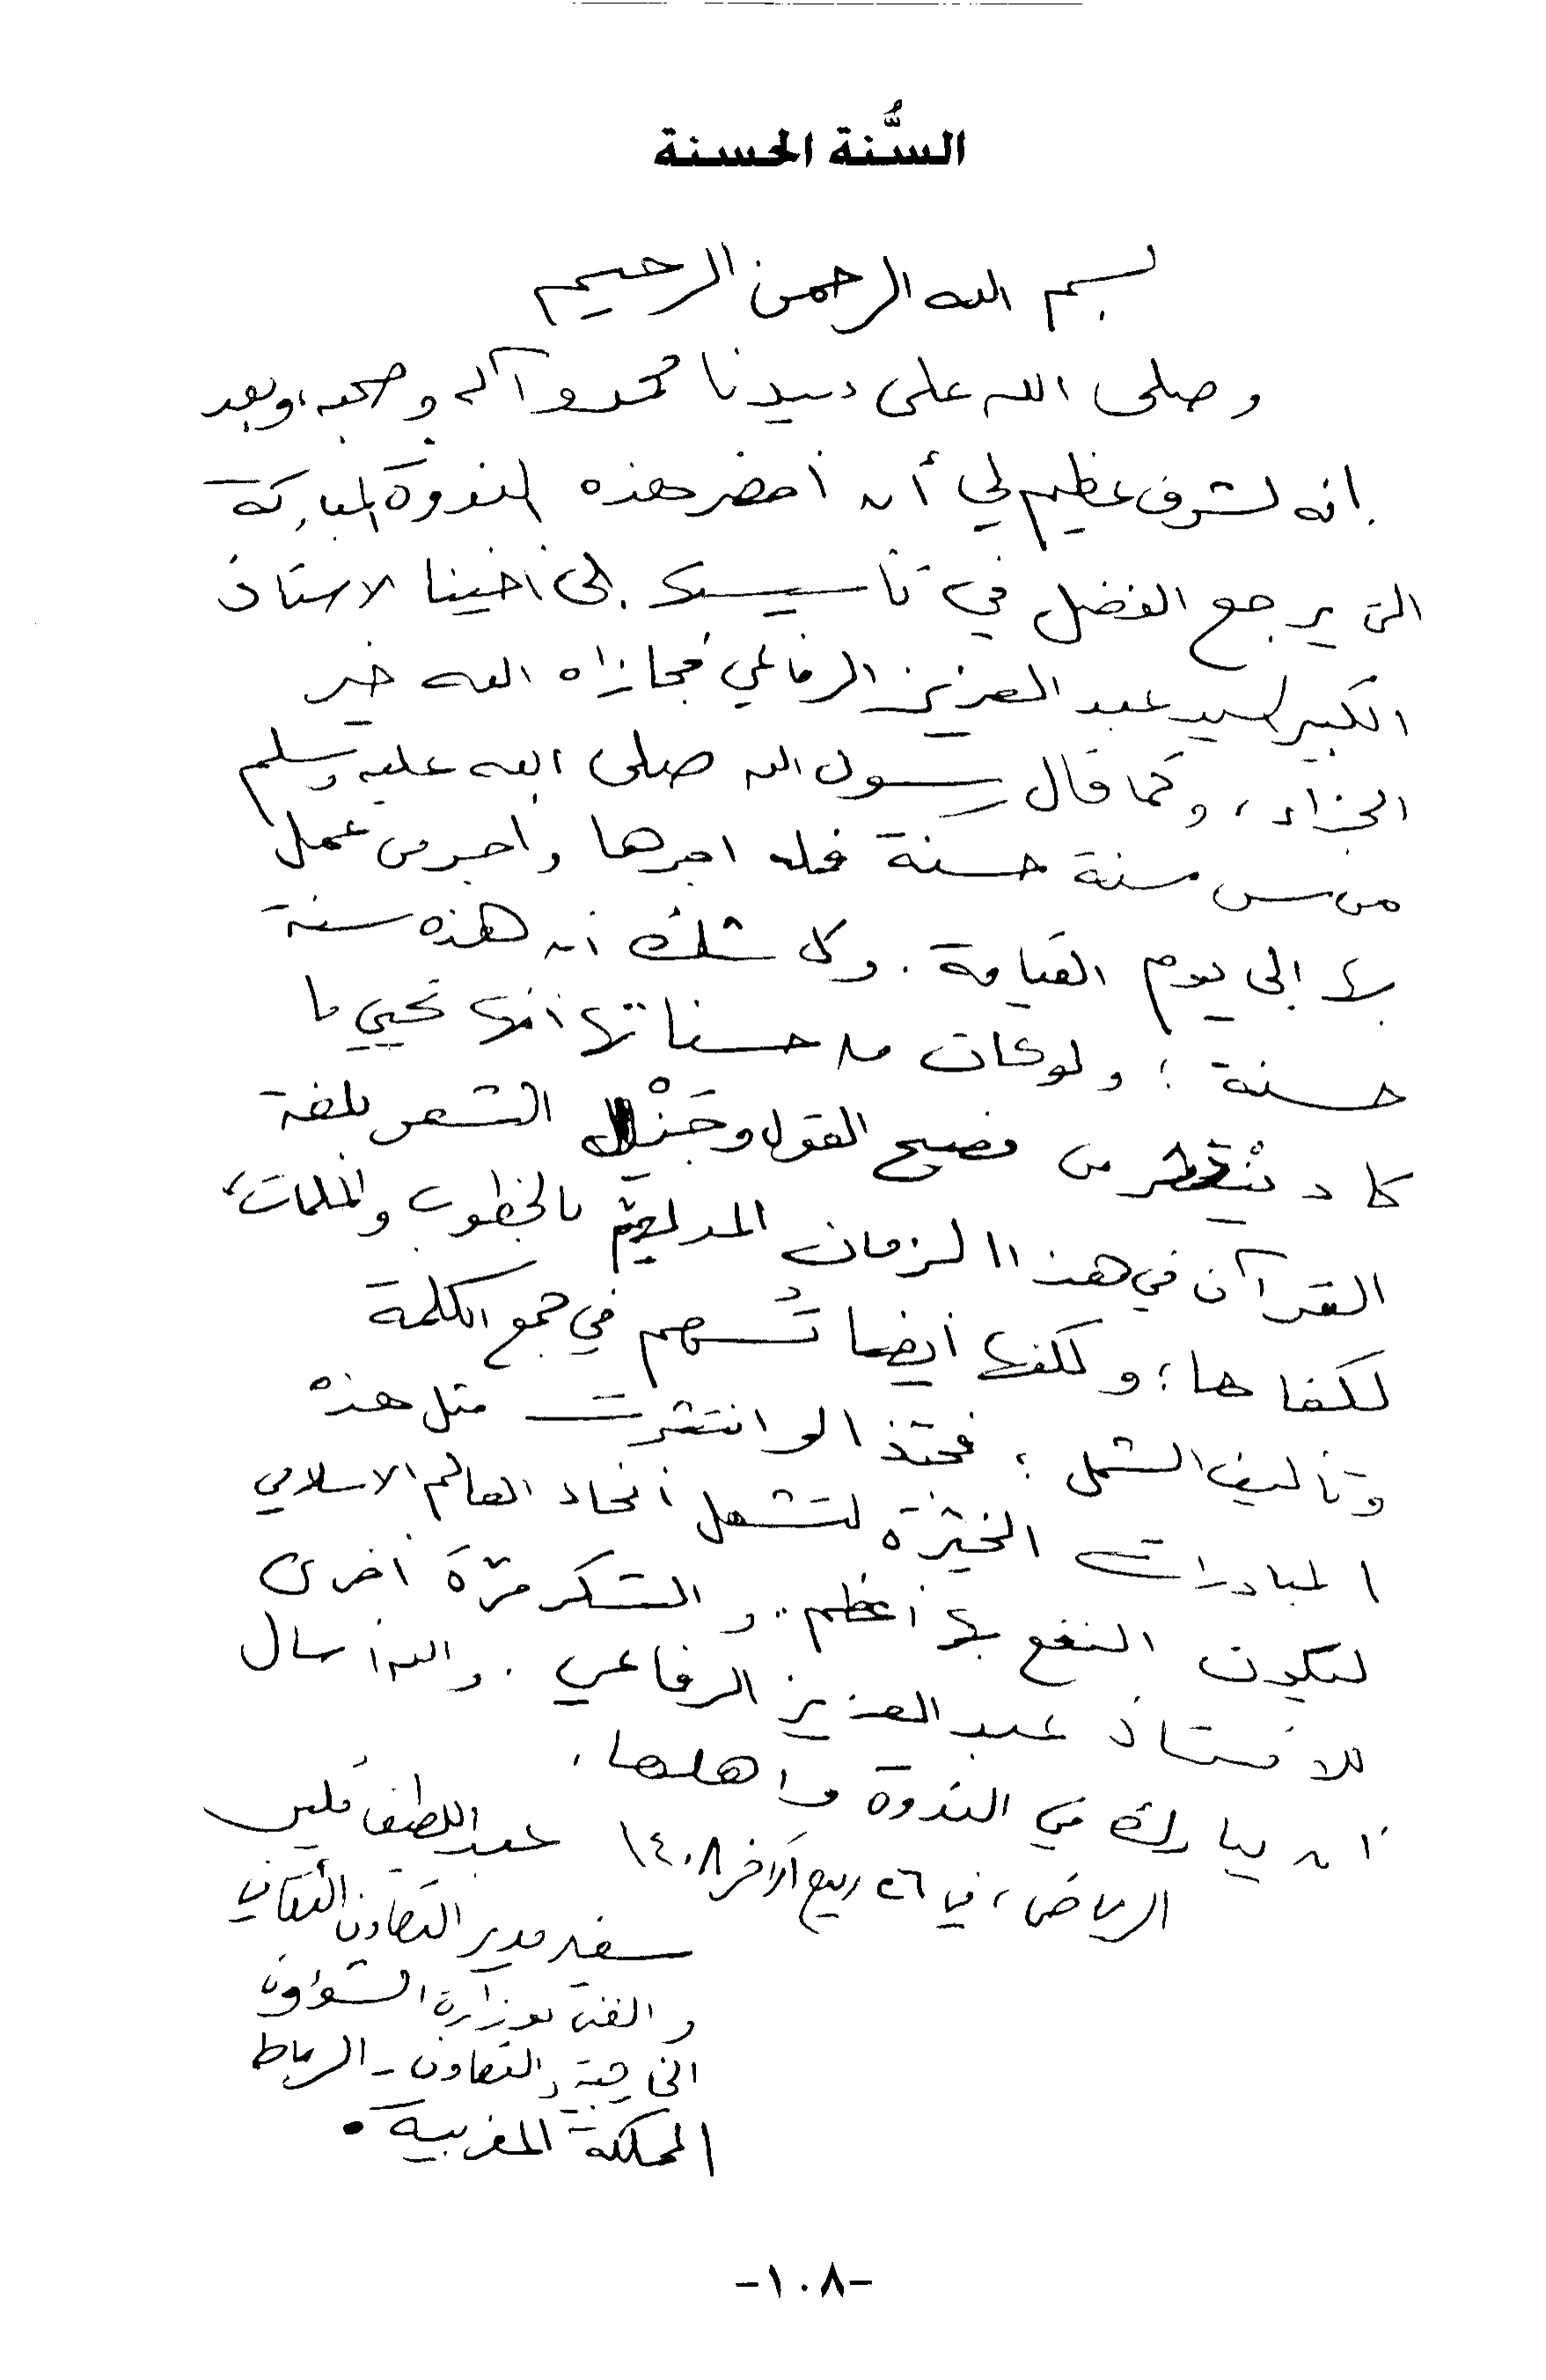 السُّنة الحسنة
بسم الله الرحمن الرحيم
وصلى الله على سيدنا محمد وآله وصحبه، وبعد
إنه لشرف عظيم لي أن أحضر هذه الندوة المباركة
التي يرجع الفضل في تأسيسها إلى أخينا الاستاذ
الكبير السيد عبد العزيز الرفاعي فجازاه الله خير
الجزاء، وكما قال رسول الله صلى الله عليه وسلم
من سن سنة حسنة فله اجرها واجر من عمل
بها إلى يوم القيامة. ولا شك أن هذه سنة
حسنة؛ ولو كان من حسناتها أنها تحيي ما
كاد ينقرض من فصيح القول وجَزْل الشعر بلغة
القرآن في هذا الزمان المدلهم بالخطوب والملمات،
لكفاها؛ ولكنها أيضا تُسهم في جمع الكلمة
وتأليف الشمل؛ فحبذا لو انتشرت مثل هذه
المبادرات الخيّرة لتشمل أنحاء العالم الاسلامي
ليكون النفع بها أعظم.. والشكر مرّة أخرى
للأستاذ عبد العزيز الرفاعي. والله أسأل
أن يبارك في الندوة وأهلها.
الرياض، في ٢٦ ربيع الآخر ١٤٠٨ عبد اللطيف
سفير مدير التعاون الثقافي
والفني بوزارة الشؤون
الخارجية والتعاون - الرباط
المملكة المغربية.
-١٠٨-